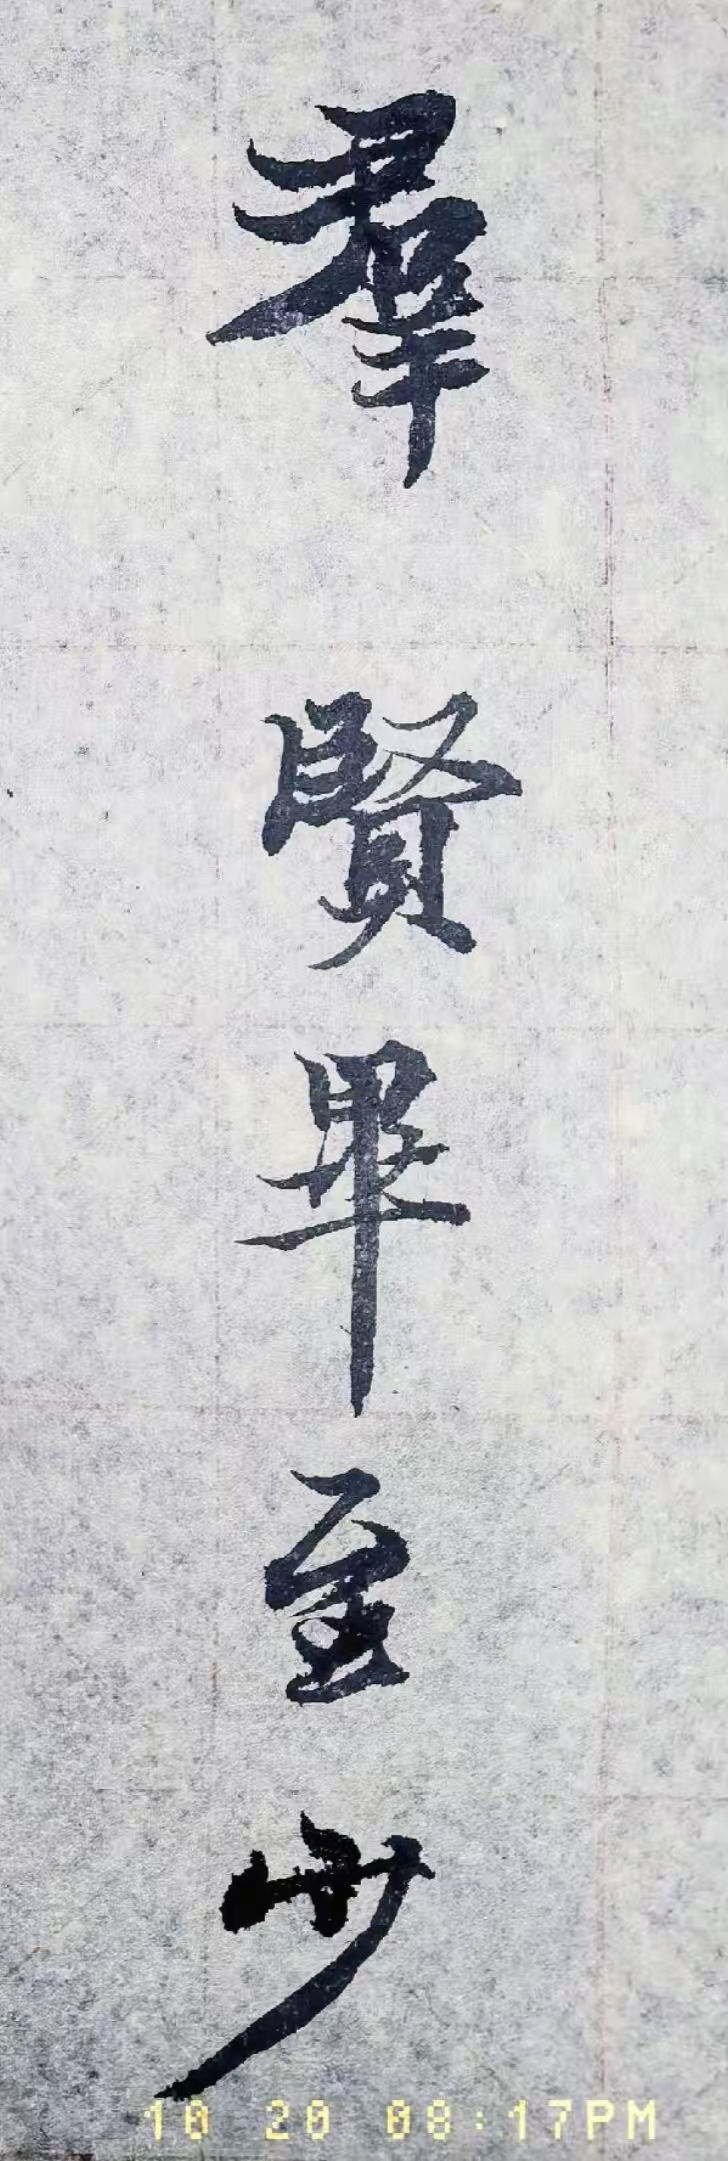 羣賢畢至少
10 20 08:17PM